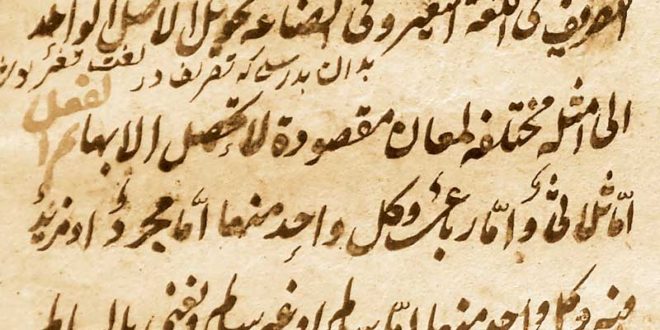 التصريف فى اللغة التغيير وفى الصناعة تحويل الاصل الواحد
بدان بدرستی که تصریف در لغت تغیر
الى امثلة مختلفة لمعان مقصودة لا تحصل الا بها ثم الفعل
امّا ثلاثىٌّ وامّا رباعىٌّ وكل واحد منهما امّا مجردٌ او مزيدٌ
فيه وكل واحد منها امّا سالم او غير سالم ونعنى بالسالم